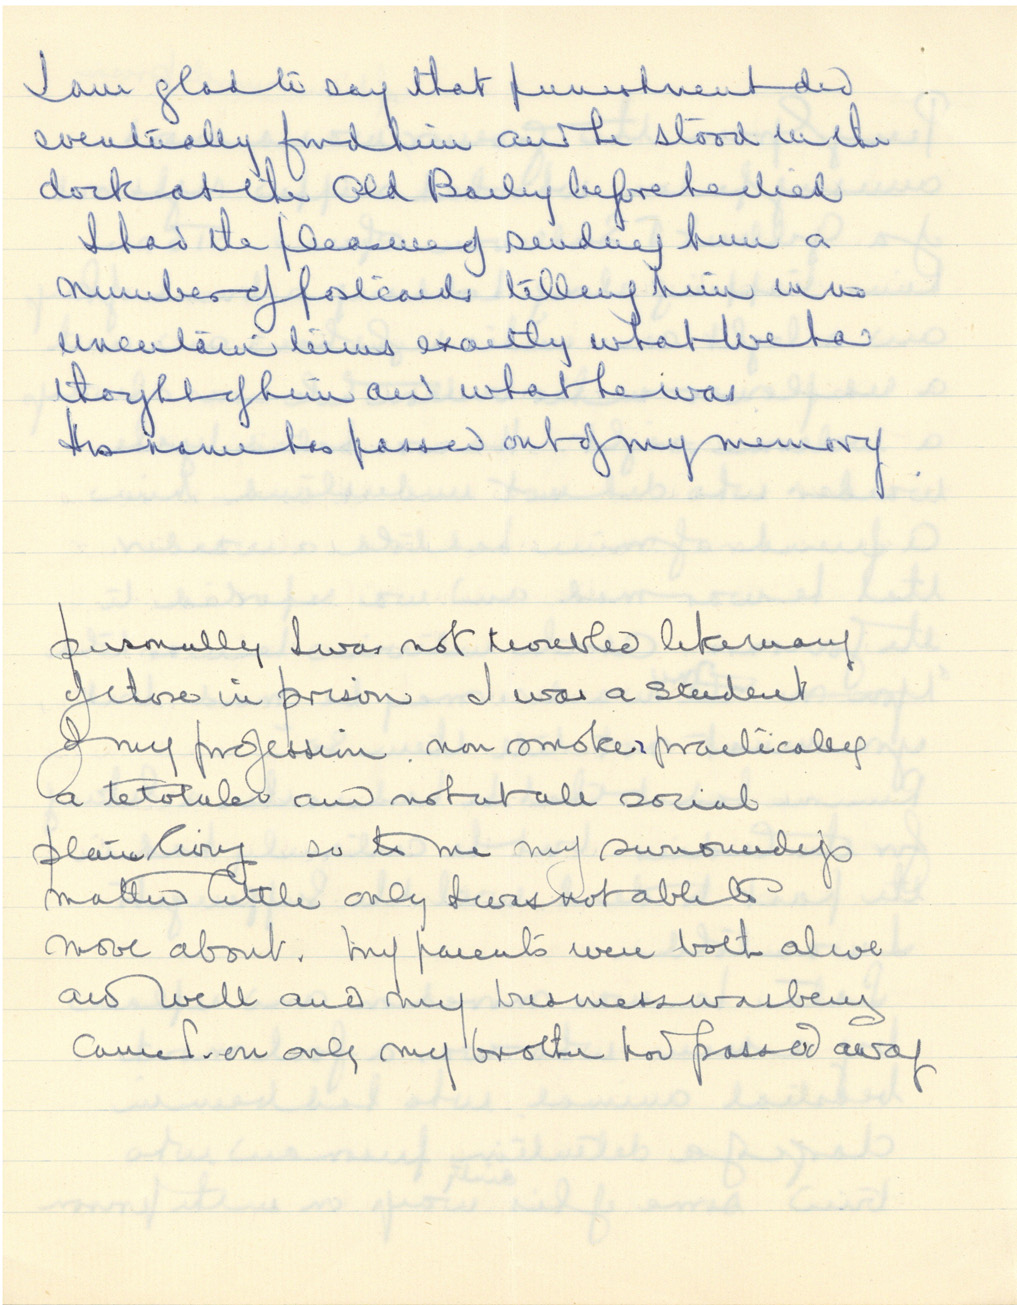 I am glad to say that punishment did
eventually find him and he stood in the
dock at the Old Bailey before he died
I had the pleasure of sending him a
number of postcards telling him in no
uncertain terms exactly what we had
thought of him and what he was
His name has passed out of my memory
personally I was not troubled like many
of those in prison I was a student
of my profession. non smoker practically
a tetotaler and not at all social
plain living so to me my surroundings
matter little only I was not able to
move about. My parents were both alive
and well and my business was being
carried on only my brother had passed away